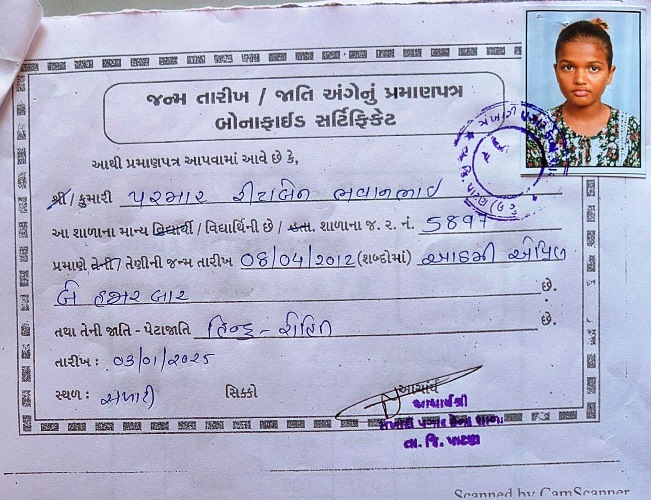 જન્મ તારીખ / જાતિ અંગેનું પ્રમાણપત્ર
બોનાફાઈડ સર્ટિફિકેટ
આથી પ્રમાણપત્ર આપવામાં આવે છે કે,
શ્રી / કુમારી પરમાર રીટાબેન ભવાનભાઇ
આ શાળાના માન્ય વિદ્યાર્થી / વિદ્યાર્થિની છે / હતા. શાળાના જ. ર. નં. 5897
પ્રમાણે તેની / તેણીની જન્મ તારીખ 08/04/2012 (શબ્દોમાં) આઠમી એપ્રિલ
બે હજાર બાર છે.
તથા તેની જાતિ - પેટાજાતિ હિન્દુ - રોહિત છે.
તારીખ : 03/01/2025
સ્થળ : સિક્કો આચાર્ય
આચાર્યશ્રી
તા. જિ. પાટણ
Scanned by CamScanner